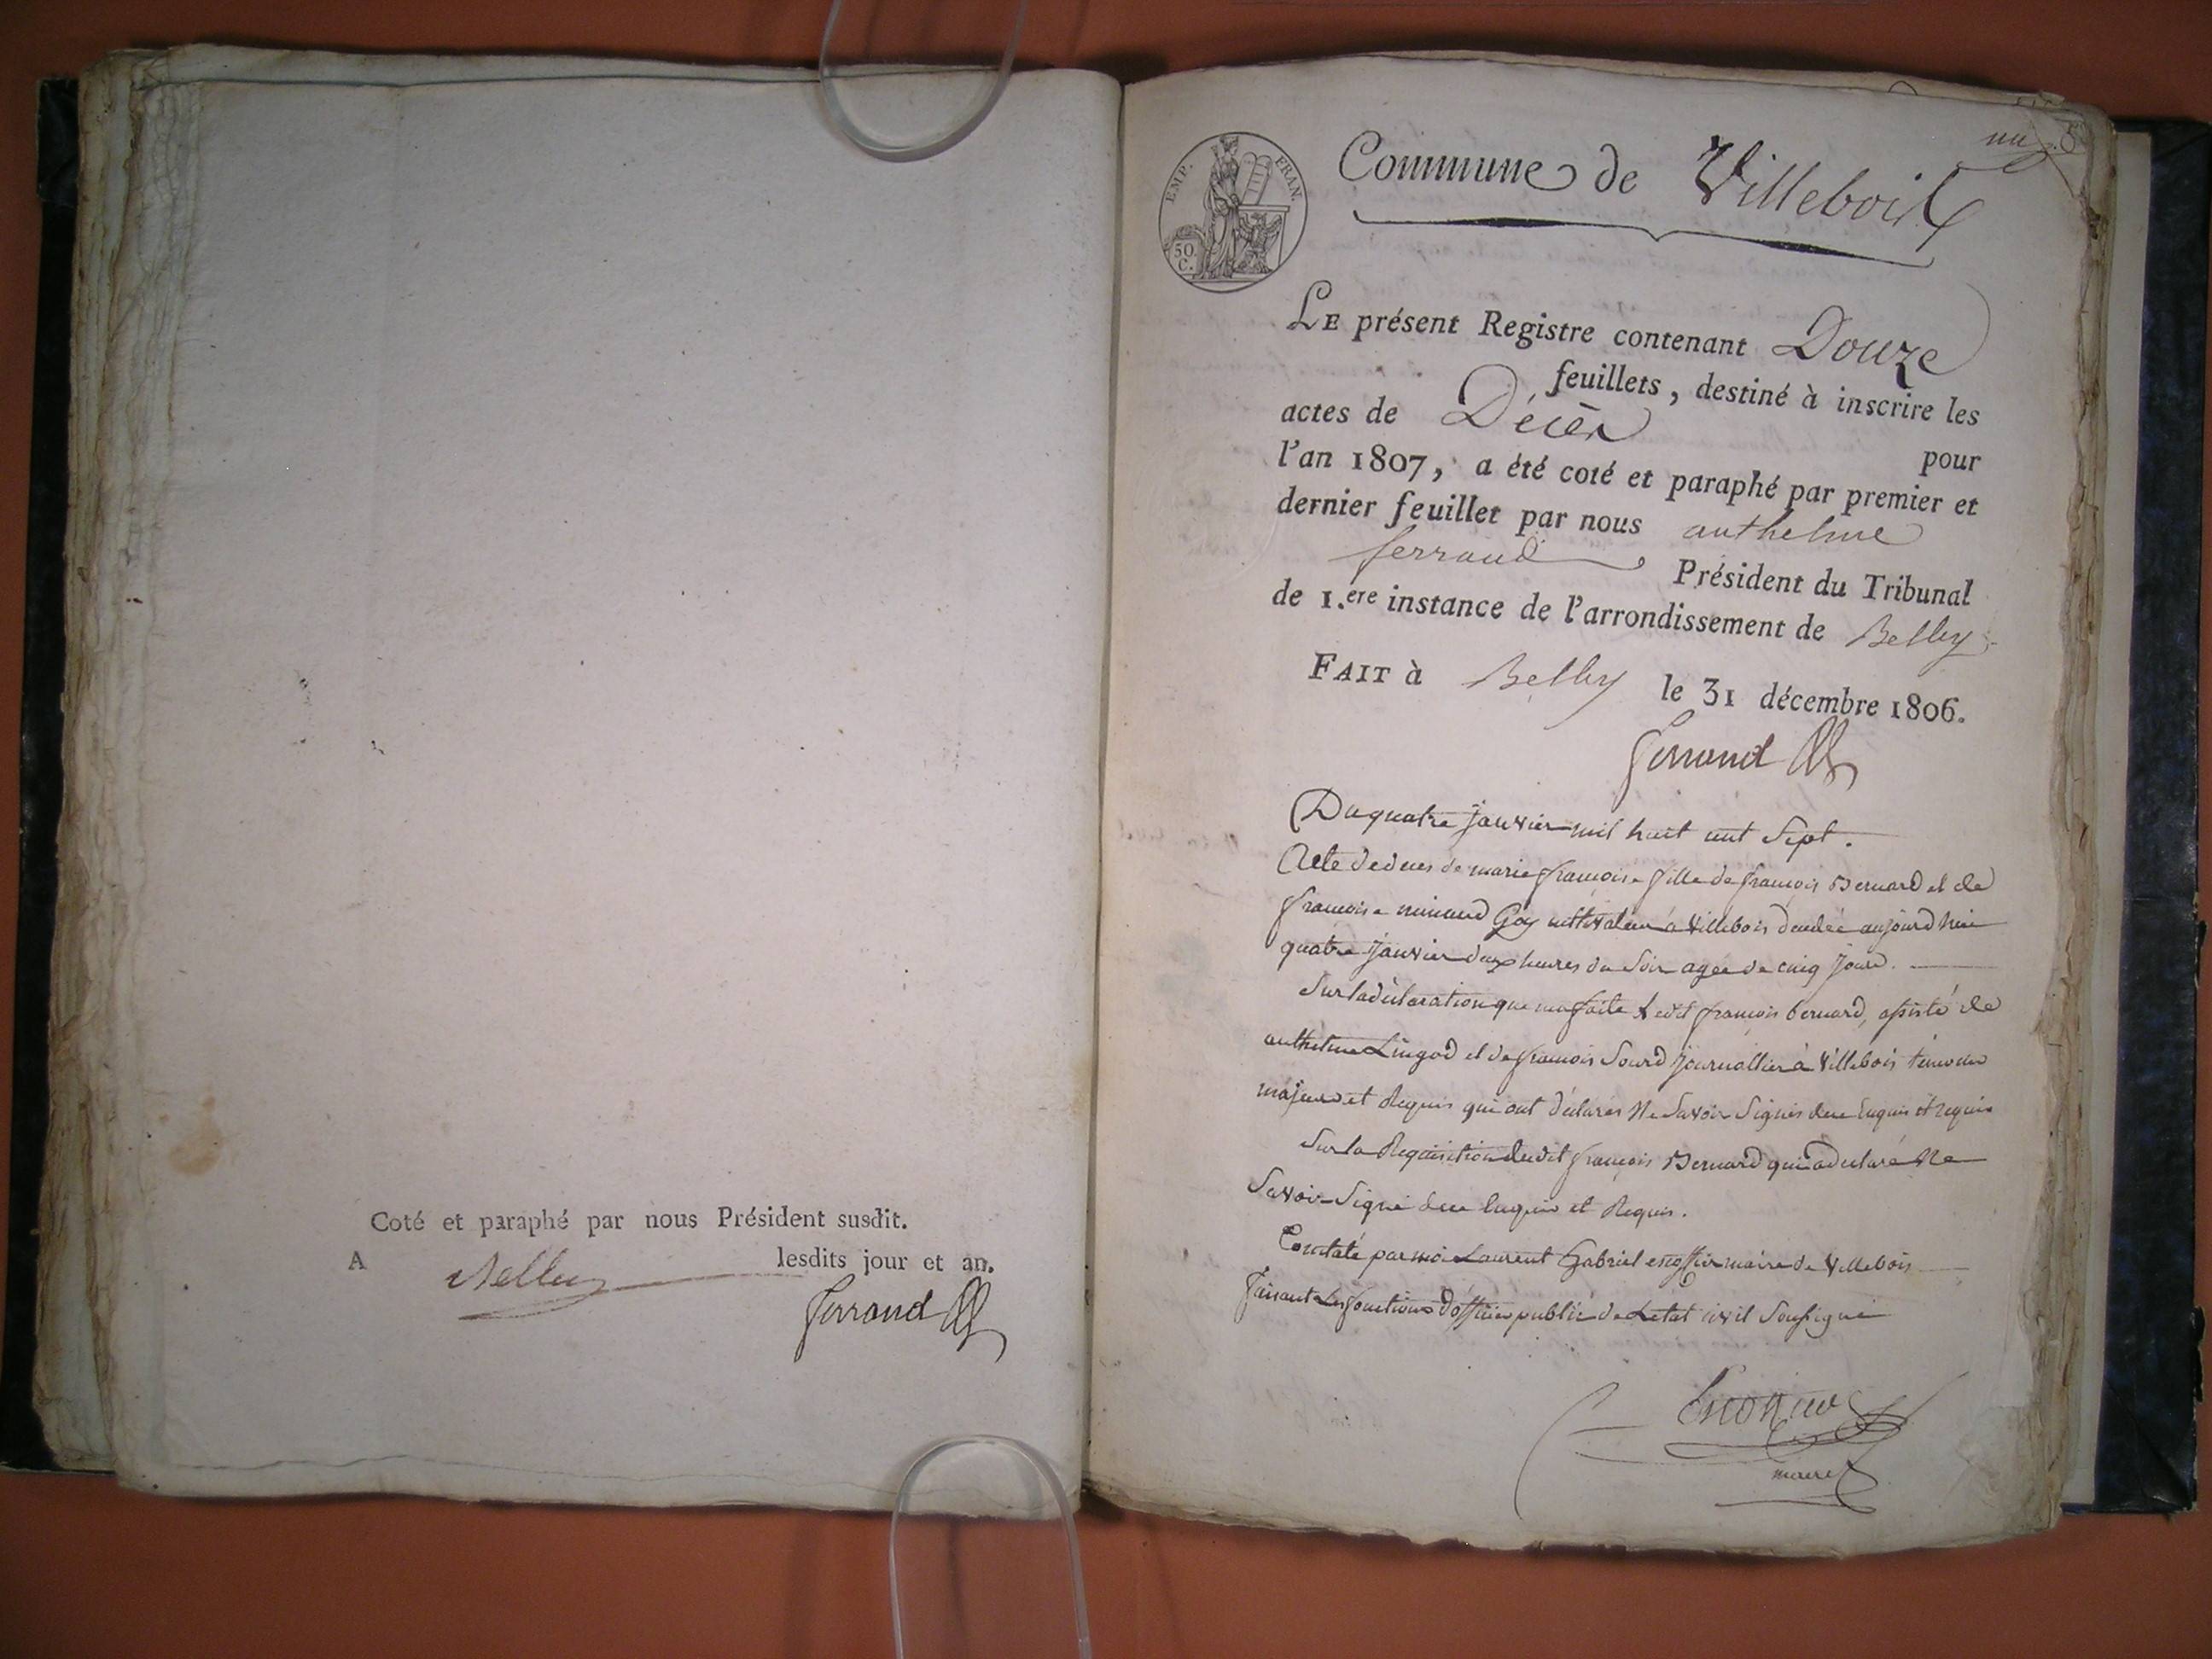 Coté et paraphé par nous Président susdit.
A Belley lesdits jour et an.
Ferrand
un
EMP. FRAN.
50 C.
Commune de Villebois
LE présent Registre contenant Douze
feuillets, destiné à inscrire les
actes de Décès pour
l'an 1807, a été coté et paraphé par premier et
dernier feuillet par nous anthelme
ferrand Président du Tribunal
de 1.ere instance de l'arrondissement de Belley
FAIT à Belley le 31 décembre 1806.
Ferrand
Du quatre janvier mil huit cent Sept.
Acte de deces de marie françoise fille de françois Bernard et de
françoise cultivateur à Villebois décédée aujourd hui
quatre Janvier deux heures du Soir agée de cinq Jours.
Sur la déclaration que ma faite Ledit françois bernard, assisté de
anthelme Lingod et de françois Sourd Journallier à Villebois témoins
majeurs et Requis qui ont déclarés Ne Savoir Signés de ce Enquis et requis
Sur la Requisition dudit françois Bernard qui a déclaré Ne
Savoir Signé de ce Enquis et Requis.
Constaté par moi Laurent Gabriel escoffier maire de Villebois
faisant Les fonctions d'officier public de Letat civil Soussigné
Escoffier
maire